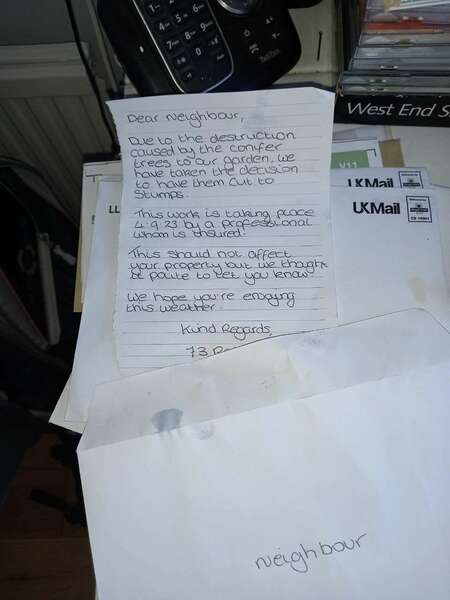 Dear Neighbour,
Due to the destruction
caused by the conifer
trees to our garden, we
have taken the decision
to have them cut to
stumps.
This work is taking place
4.9.23 by a professional
whom is insured.
This should not affect
your property but we thought
be polite to let you know
We hope you're enoying
this weather.
Kind Regards,
73
West End S
V11
UKMail
UKMail
LL
Neighbour